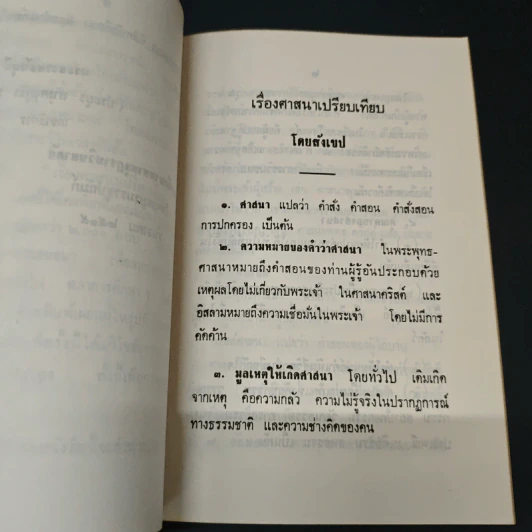 เรื่องศาสนาเปรียบเทียบ
โดยสังเขป
๑. ศาสนา แปลว่า คำสั่ง คำสอน คำสั่งสอน
การปกครอง เป็นต้น
๒. ความหมายของคำว่าศาสนา ในพระพุทธ-
ศาสนาหมายถึงคำสอนของท่านผู้รู้อันประกอบด้วย
เหตุผลโดยไม่เกี่ยวกับพระเจ้า ในศาสนาคริสต์ และ
อิสลามหมายถึงความเชื่อมั่นในพระเจ้า โดยไม่มีการ
คัดค้าน
๓. มูลเหตุให้เกิดศาสนา โดยทั่วไป เดิมเกิด
จากเหตุ คือความกลัว ความไม่รู้จริงในปรากฏการณ์
ทางธรรมชาติ และความช่างคิดของคน